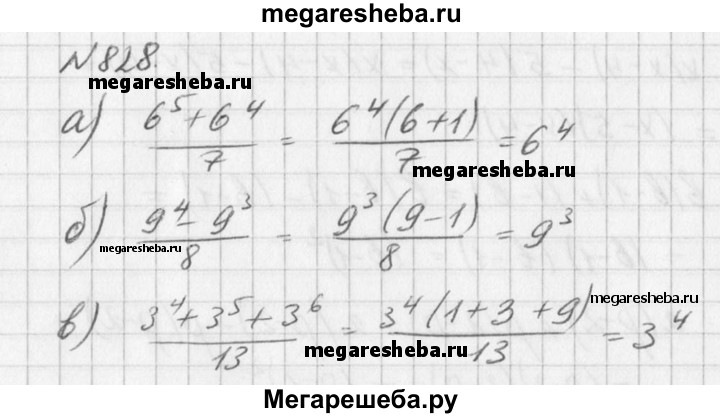 megaresheba.ru
N 828.
megaresheba.ru
а) (6⁵ + 6⁴)/7 = 6⁴(6+1)/7 = 6⁴
megaresheba.ru
б) (9⁴ - 9³)/8 = 9³(9-1)/8 = 9³
megaresheba.ru
megaresheba.ru
в) (3⁴ + 3⁵ + 3⁶)/13 = 3⁴(1+3+9)/13 = 3⁴
megaresheba.ru
Мегарешеба.ру